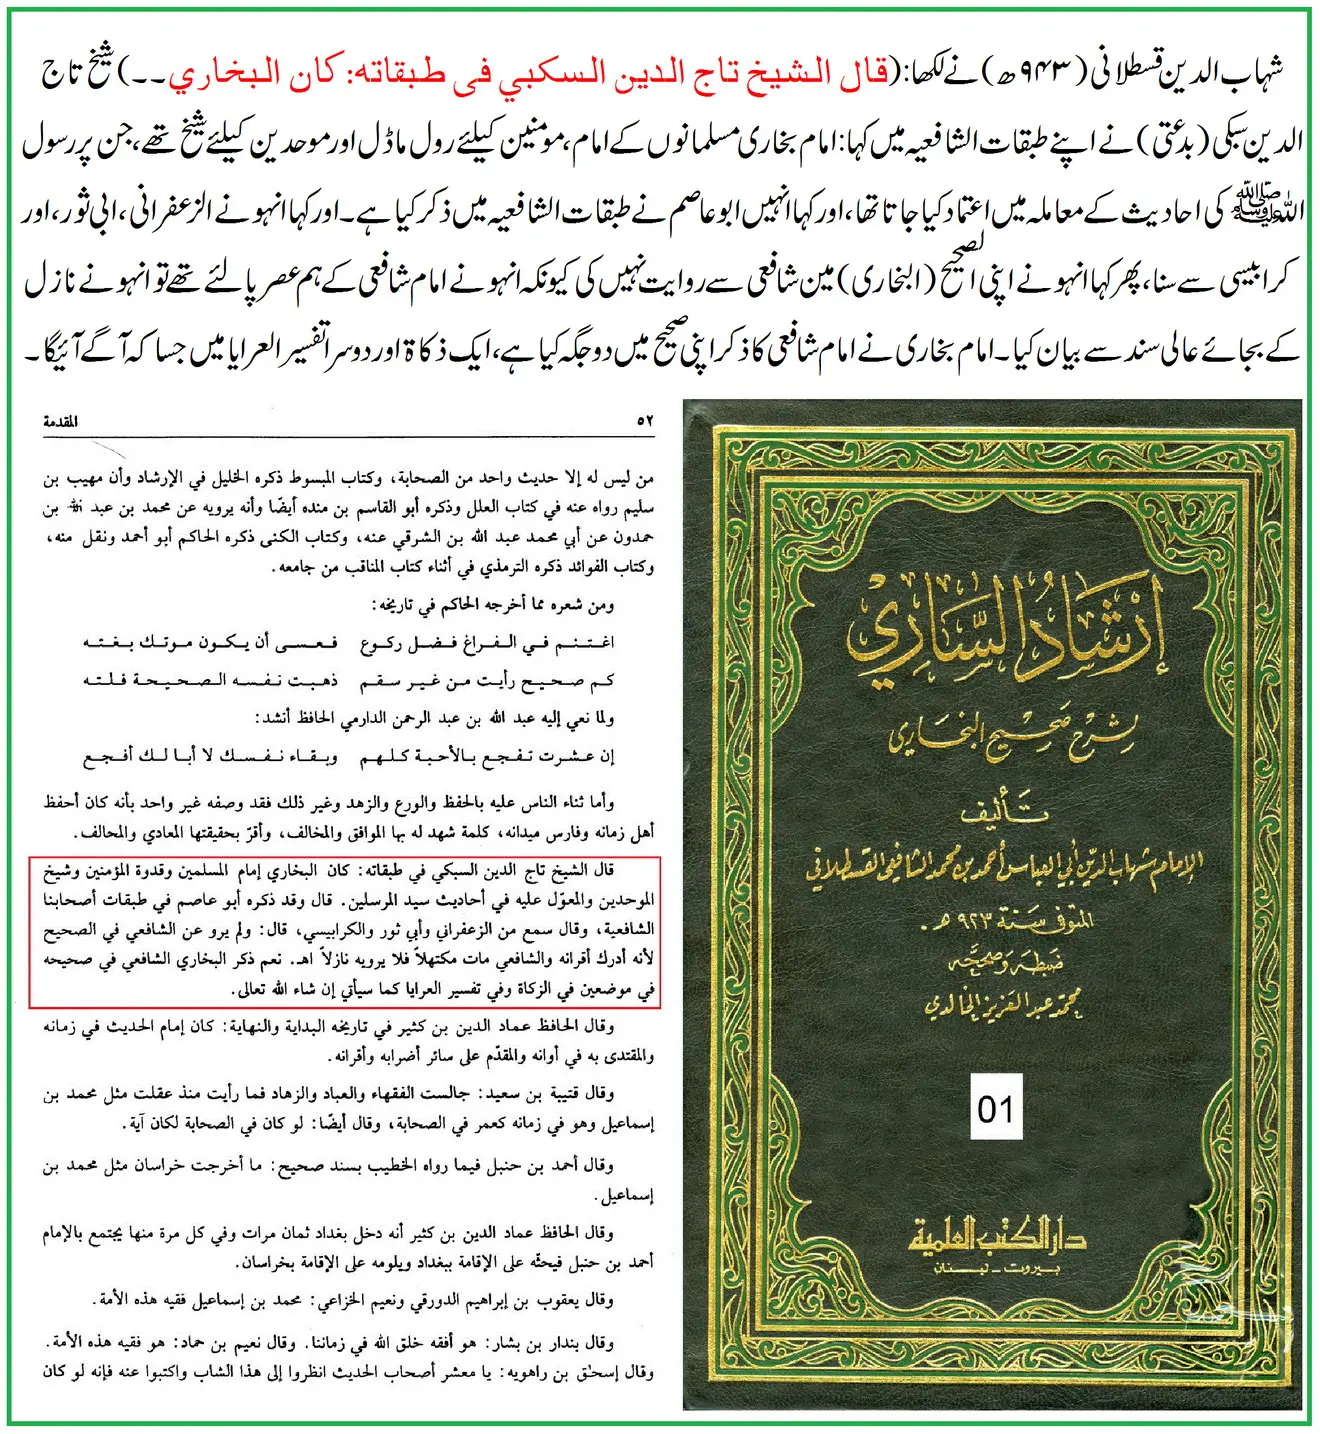 شہاب الدین قسطلانی (۹۴۳ھ) نے لکھا: (قال الشيخ تاج الدين السكبي فى طبقاته: كان البخاري ۔۔) شیخ تاج
الدین سبکی (بدعتی) نے اپنے طبقات الشافعیہ میں کہا: امام بخاری مسلمانوں کے امام، مومنین کیلئے رول ماڈل اور موحدین کیلئے شیخ تھے، جن پر رسول
اللہ ﷺ کی احادیث کے معاملہ میں اعتماد کیا جاتا تھا، اور کہا انہیں ابو عاصم نے طبقات الشافعیہ میں ذکر کیا ہے۔ اور کہا انہو نے الزعفرانی، ابی ثور، اور
کرابیسی سے سنا، پھر کہا انہو نے اپنی الصحیح (البخاری) مین شافعی سے روایت نہیں کی کیونکہ انہو نے امام شافعی کے ہم عصر پالئے تھے تو انہو نے نازل
کے بجائے عالی سند سے بیان کیا۔ امام بخاری نے امام شافعی کا ذکر اپنی صحیح میں دو جگہ کیا ہے، ایک ذکاۃ اور دوسرا تفسیر العرایا میں جسا کہ آگے آئیگا۔
٥٢ المقدمة
من ليس له إلا حديث واحد من الصحابة، وكتاب المبسوط ذكره الخليل في الإرشاد وأن مهيب بن
سليم رواه عنه في كتاب العلل وذكره أبو القاسم بن منده أيضًا وأنه يرويه عن محمد بن عبد الله بن
حمدون عن أبي محمد عبد الله بن الشرقي عنه، وكتاب الكنى ذكره الحاكم أبو أحمد ونقل منه،
وكتاب الفوائد ذكره الترمذي في أثناء كتاب المناقب من جامعه.
ومن شعره مما أخرجه الحاكم في تاريخه:
اغتنم في الفراغ فضل ركوع فعسى أن يكون موتك بغته
كم صحيح رأيت من غير سقم ذهبت نفسه الصحيحة فلته
ولما نعي إليه عبد الله بن عبد الرحمن الدارمي الحافظ أنشد:
إن عشرت تفجع بالأحبة كلهم وبقاء نفسك لا أبا لك أفجع
وأما ثناء الناس عليه بالحفظ والورع والزهد وغير ذلك فقد وصفه غير واحد بأنه كان أحفظ
أهل زمانه وفارس ميدانه، كلمة شهد له بها الموافق والمخالف، وأقرّ بحقيقتها المعادي والمحالف.
قال الشيخ تاج الدين السبكي في طبقاته: كان البخاري إمام المسلمين وقدوة المؤمنين وشيخ
الموحدين والمعوّل عليه في أحاديث سيد المرسلين. قال وقد ذكره أبو عاصم في طبقات أصحابنا
الشافعية، وقال سمع من الزعفراني وأبي ثور والكرابيسي، قال: ولم يرو عن الشافعي في الصحيح
لأنه أدرك أقرانه والشافعي مات مكتهلاً فلا يرويه نازلاً اهـ. نعم ذكر البخاري الشافعي في صحيحه
في موضعين في الزكاة وفي تفسير العرايا كما سيأتي إن شاء الله تعالى.
وقال الحافظ عماد الدين بن كثير في تاريخه البداية والنهاية: كان إمام الحديث في زمانه
والمقتدى به في أوانه والمقدّم على سائر أضرابه وأقرانه.
وقال قتيبة بن سعيد: جالست الفقهاء والعباد والزهاد فما رأيت منذ عقلت مثل محمد بن
إسماعيل وهو في زمانه كعمر في الصحابة، وقال أيضًا: لو كان في الصحابة لكان آية.
وقال أحمد بن حنبل فيما رواه الخطيب بسند صحيح: ما أخرجت خراسان مثل محمد بن
إسماعيل.
وقال الحافظ عماد الدين بن كثير أنه دخل بغداد ثمان مرات وفي كل مرة منها يجتمع بالإمام
أحمد بن حنبل فيحثّه على الإقامة ببغداد ويلومه على الإقامة بخراسان.
وقال يعقوب بن إبراهيم الدورقي ونعيم الخزاعي: محمد بن إسماعيل فقيه هذه الأمة.
وقال بندار بن بشار: هو أفقه خلق الله في زماننا. وقال نعيم بن حماد: هو فقيه هذه الأمة.
وقال إسحٰق بن راهويه: يا معشر أصحاب الحديث انظروا إلى هذا الشاب واكتبوا عنه فإنه لو كان
إرشاد الساري
لشرح صحيح البخاري
تأليف
الإمام شهاب الدين أبي العباس أحمد بن محمد الشافعي القسطلاني
المتوفى سنة ٩٢٣ هـ.
ضبطه وصححه
محمد عبد العزيز الخالدي
01
دار الكتب العلمية
بيروت - لبنان